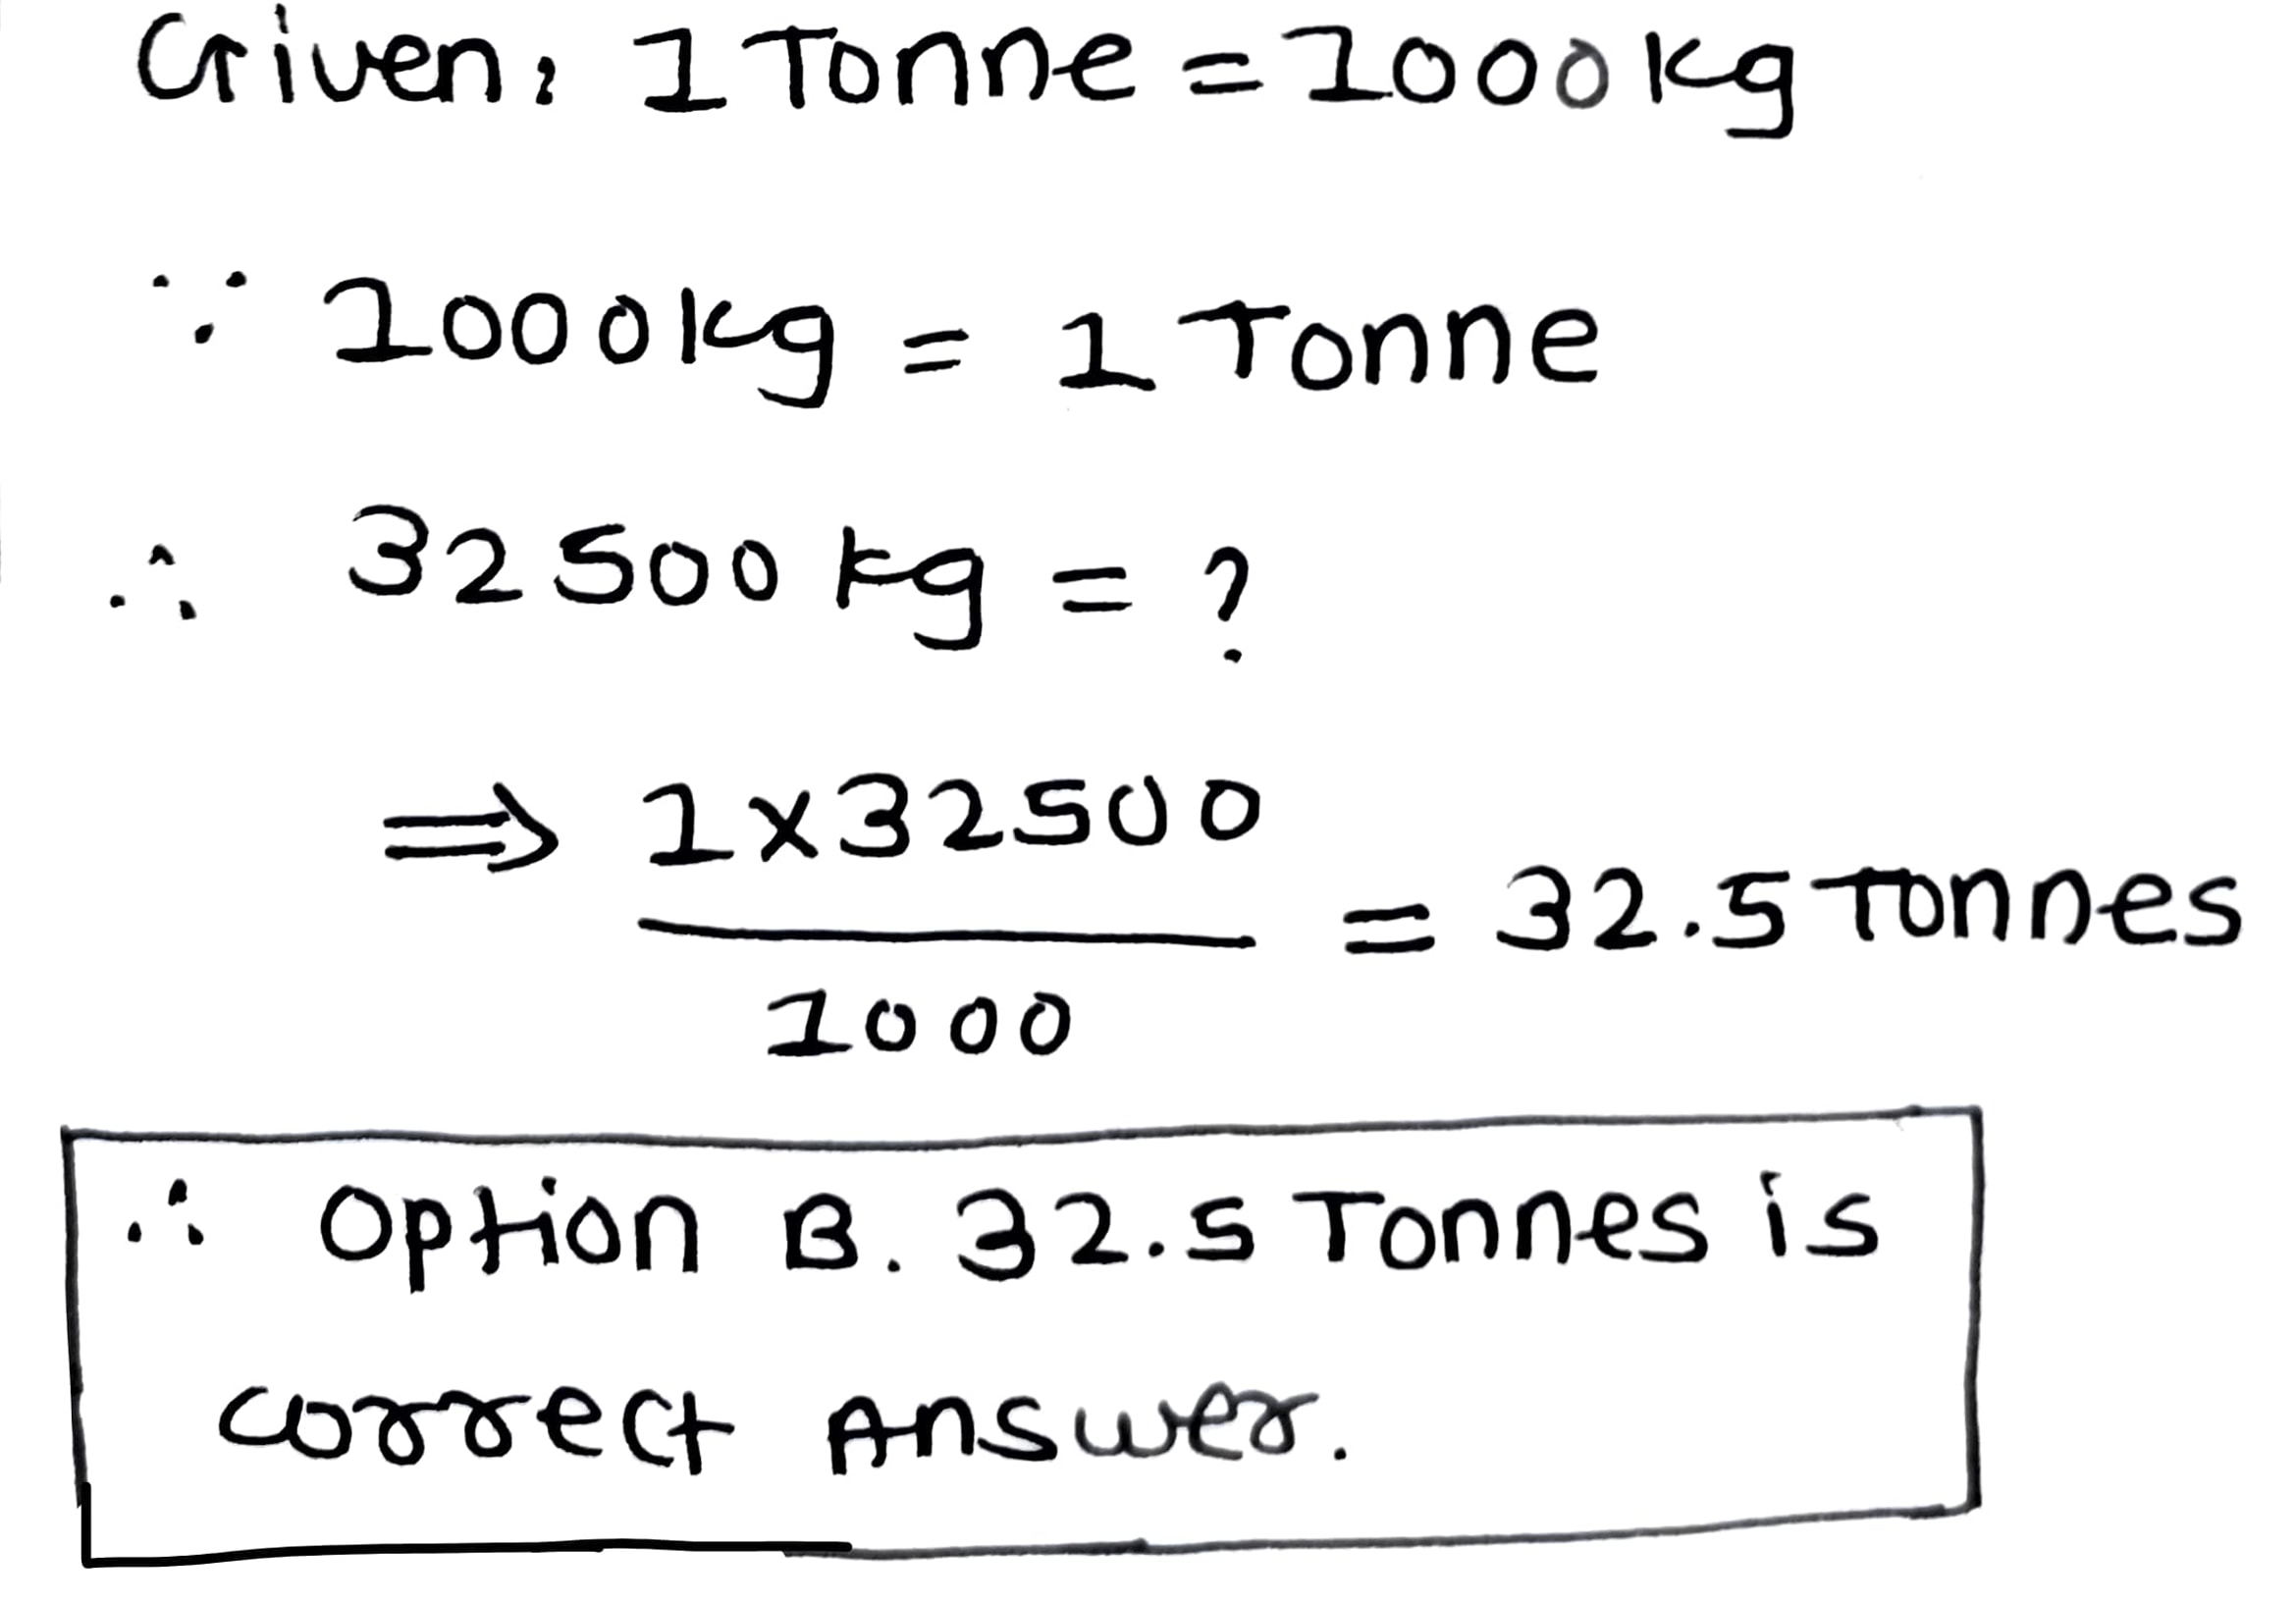 Given: 1 Tonne = 1000 kg
∵ 1000 kg = 1 Tonne
∴ 32500 kg = ?
⇒ 1 x 32500
= 32.5 Tonnes
1000
∴ Option B. 32.5 Tonnes is
correct Answer.